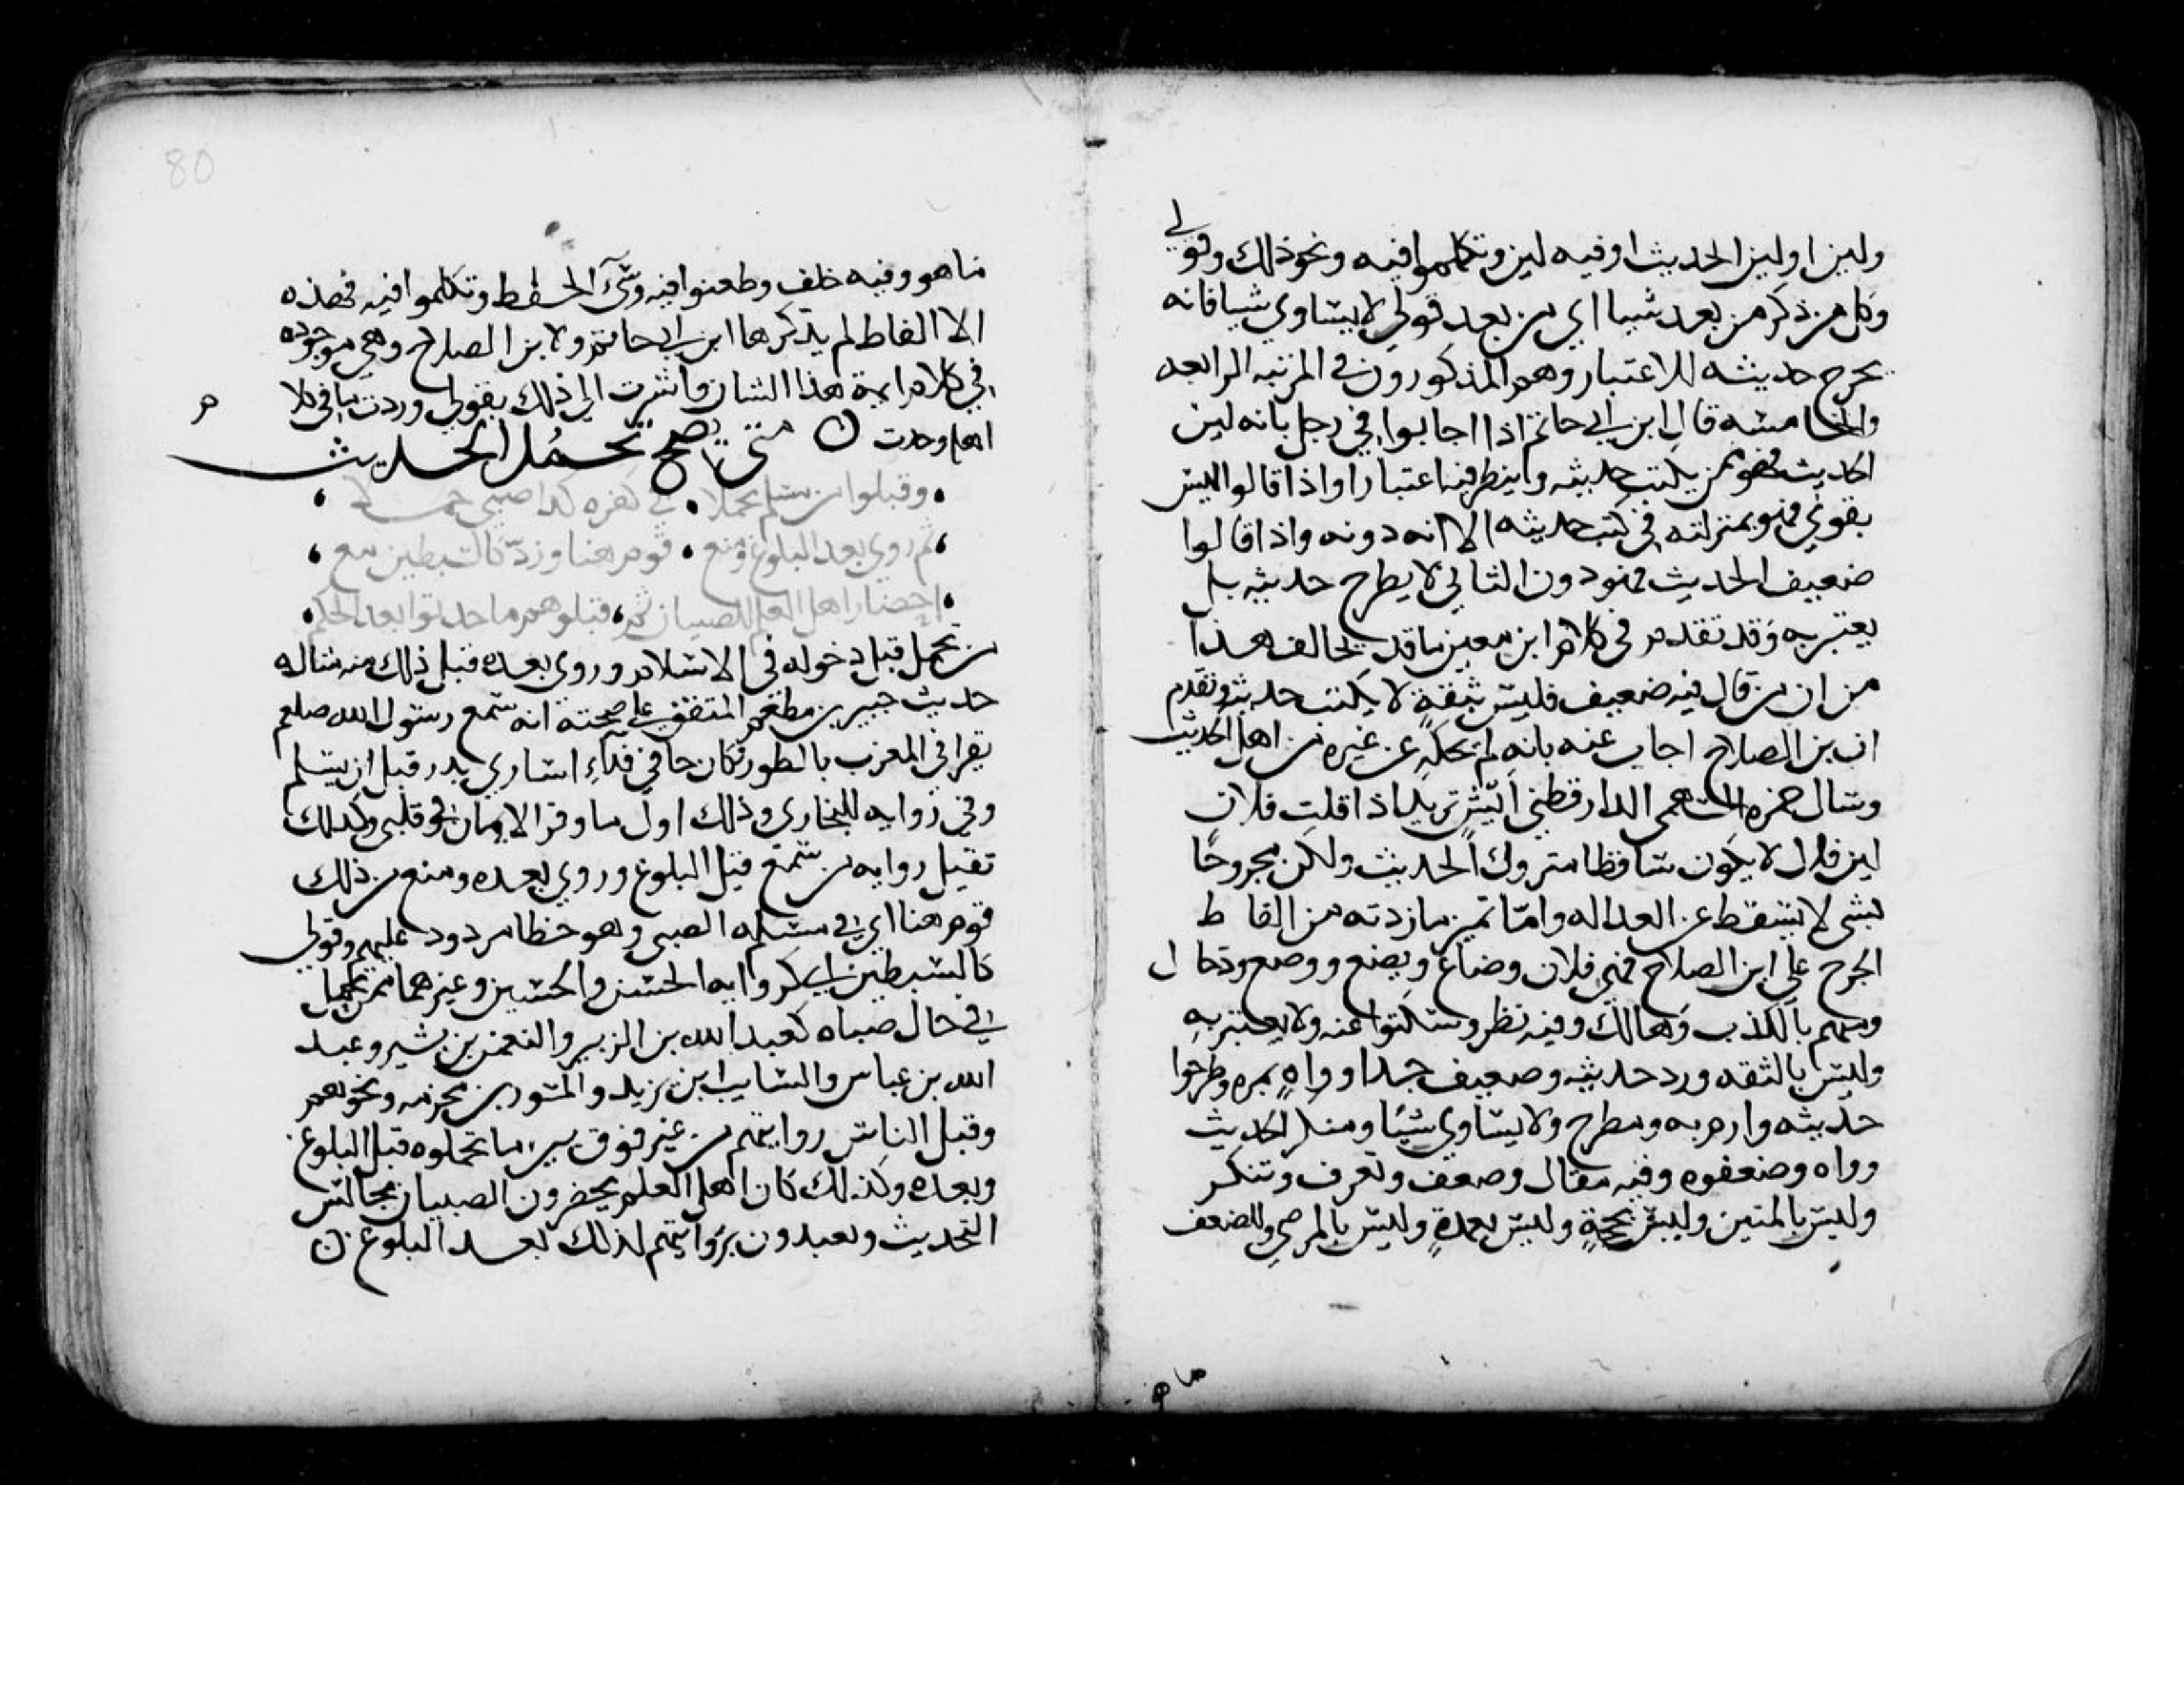 ولين اولين الحديث اوفيه لين وتكلموا فيه ونحو ذلك وقولي
وكل من ذكر من بعد شيا اي من بعد قولي لا يساوي شيا فانه
يخرج حديثه للاعتبار وهم المذكورون في المرتبه الرابعه
والخامسه قال ابن ابي حاتم اذا اجابوا في رجل بانه لين
الحديث فهو ممن يكتب حديثه وينظر فيه اعتبارا واذا قالوا ليس
بقوي فهو بمنزلته في كتب حديثه الا انه دونه واذا قالوا
ضعيف الحديث فهو دون الثاني لا يطرح حديثه بل
يعتبر به وقد تقدم في كلام ابن معين ما قد يخالف هذا
من ان من قال فيه ضعيف فليس بثقة لا يكتب حديثه وتقدم
ان بن الصلاح اجاب عنه بانه لم يحكه عن غيره من اهل الحديث
وسال حمزه السهمي الدارقطني ايش تريد اذا قلت فلان
لين قال لا يكون ساقطا متروك الحديث ولكن مجروحا
بشي لا يسقط عن العداله واما تمييز ما زدته من الفاظ
الجرح علي ابن الصلاح فهي فلان وضاع ويضع ووضع ودجال
ومتهم بالكذب وهالك وفيه نظر وسكتوا عنه ولا يعتبر به
وليس بالثقه ورد حديثه وضعيف جدا وواه بمره وطرحوا
حديثه وارم به ومطرح ولا يساوي شيا ومنكر الحديث
وواه وضعفوه وفيه مقال وضعف وتعرف وتنكر
وليس بالمتين وليس بحجة وليس بعمدة وليس بالمرضي وللضعف
ما هو
80
ما هو وفيه خلف وطعنوا فيه وسي الحفظ وتكلموا فيه فهذه
الالفاظ لم يذكرها ابن ابي حاتم ولا بن الصلاح وهي موجوده
في كلام ايمة هذا الشان واشرت الي ذلك بقولي وزدت ما في كلام
اهله وجدت ن متى يصح تحمل الحديث
وقبلوا من مسلم تحملا . في كفره كذا صبي حملا
ثم روي بعد البلوغ ومنع . قوم هنا ورد كالسبطين مع
احضار اهل العلم للصبيان ثم . قبلوهم ما حدثوا بعد الحلم
من تحمل قبل دخوله في الاسلام وروي بعده قبل ذلك منه مثاله
حديث جبير بن مطعم المتفق علي صحته انه سمع رسول الله صلعم
يقرا في المغرب بالطور وكان جا في فداء اساري بدر قبل ان يسلم
وفي روايه للبخاري وذلك اول ما وقر الايمان في قلبي وكذلك
تقبل روايه من سمع قبل البلوغ وروي بعده ومنع من ذلك
قوم هنا اي في مسئله الصبي وهو خطا مردود عليهم وقولي
كالسبطين اي كروايه الحسن والحسين وغيرهما ممن تحمل
في حال صباه كعبد الله بن الزبير والنعمن بن بشير وعبد
الله بن عباس والسايب ابن يزيد والمسور بن مخرمه ونحوهم
وقبل الناس روايتهم من غير فرق بين ما تحملوه قبل البلوغ
وبعده وكذلك كان اهل العلم يحضرون الصبيان مجالس
التحديث ويعتدون بروايتهم لذلك بعد البلوغ ن